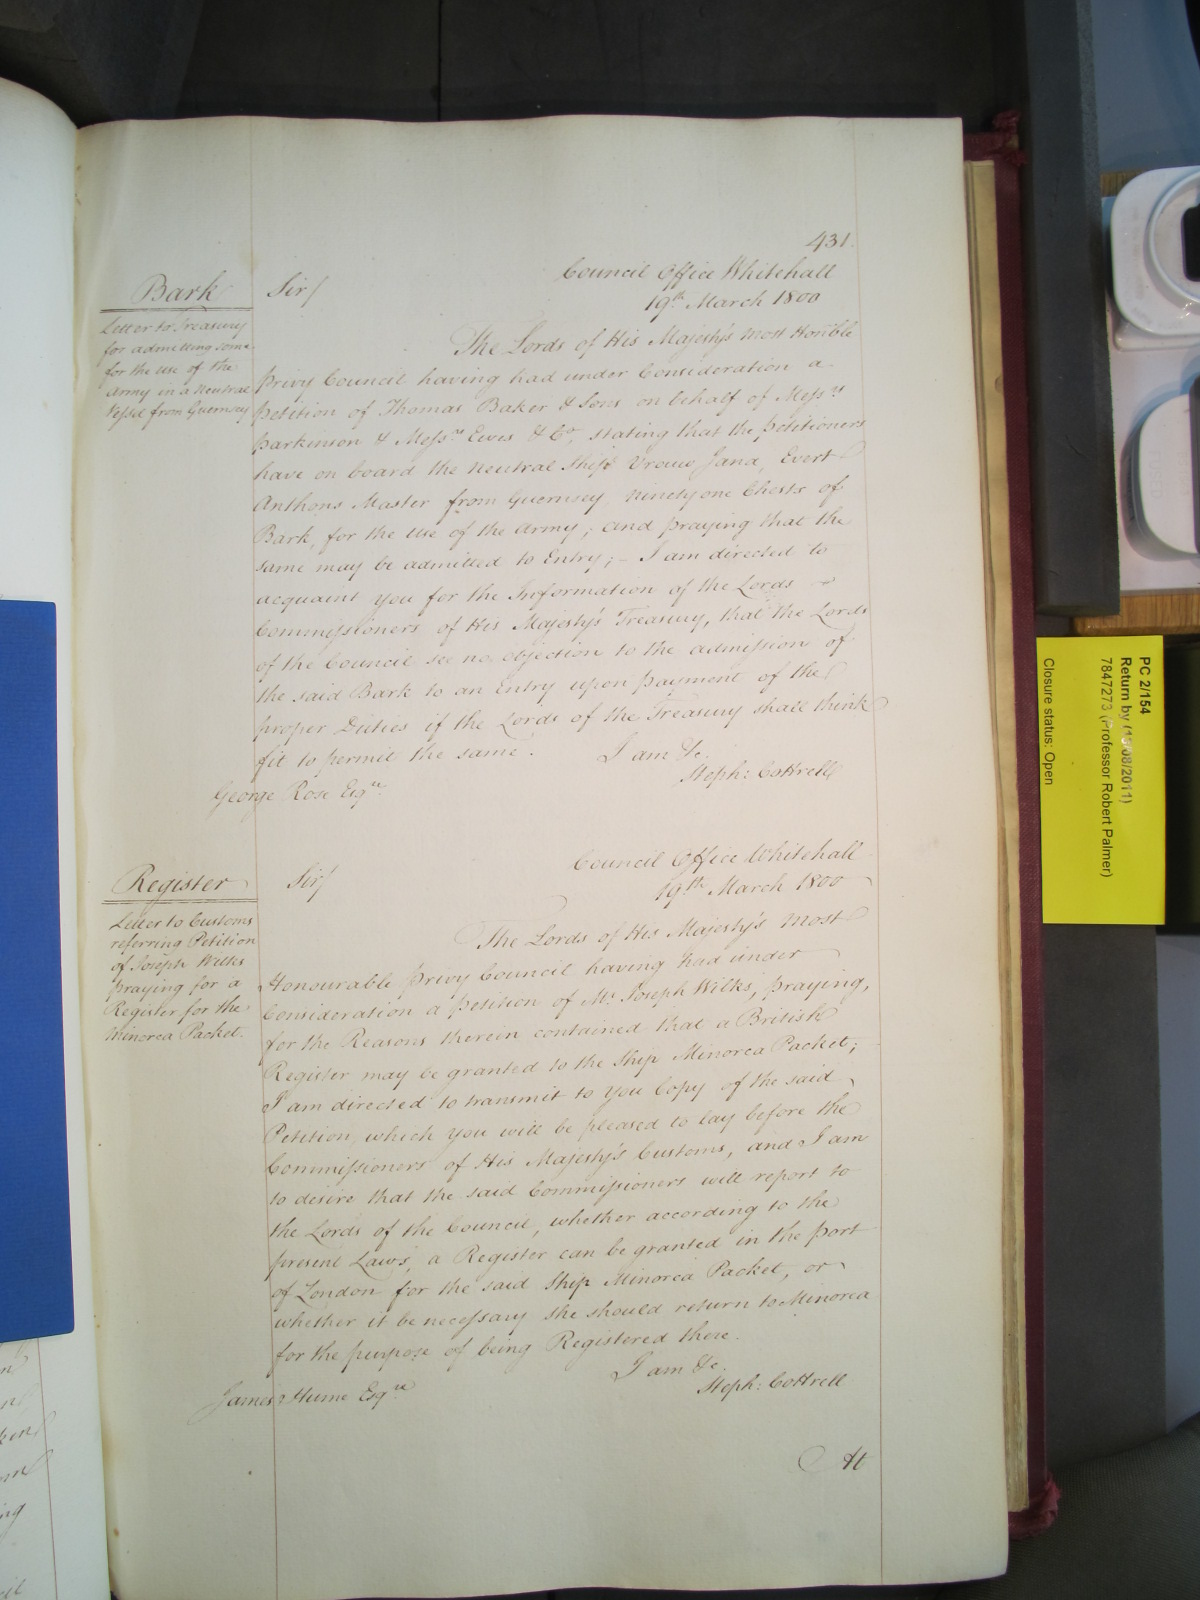 431.
Bark
Letter to Treasury
for admitting some
for the use of the
Army in a Neutral
Vessel from Guernsey
Sir/
Council Office Whitehall
19th March 1800
The Lords of His Majesty's most Honble
Privy Council having had under Consideration a
Petition of Thomas Baker & Sons on behalf of Messrs
Parkinson & Messrs Ewes & Co, stating that the Petitioners
have on board the Neutral Ship Vrouw Jana, Evert
Anthons Master from Guernsey, Ninety one Chests of
Bark, for the use of the Army; and praying that the
same may be admitted to Entry; - I am directed to
acquaint you for the Information of the Lords
Commissioners of His Majesty's Treasury, that the Lords
of the Council see no objection to the admission of
the said Bark to an Entry upon payment of the
proper Duties if the Lords of the Treasury shall think
fit to permit the same.
I am &c.
Steph: Cottrell
George Rose Esqre
Register
Letter to Customs
referring Petition
of Joseph Wilks
praying for a
Register for the
Minorca Packet.
Sir/
Council Office Whitehall
19th March 1800
The Lords of His Majesty's most
Honourable Privy Council having had under
Consideration a Petition of Mr Joseph Wilks, praying,
for the Reasons therein contained that a British
Register may be granted to the Ship Minorca Packet;
I am directed to transmit to you Copy of the said
Petition, which you will be pleased to lay before the
Commissioners of His Majesty's Customs, and I am
to desire that the said Commissioners will report to
the Lords of the Council, whether according to the
present Laws, a Register can be granted in the Port
of London for the said Ship Minorca Packet, or
whether it be necessary she should return to Minorca
for the purpose of being Registered there.
I am &c.
Steph: Cottrell
James Hume Esqre
At
PC 2/154
Return by (15/08/2011)
7847273 (Professor Robert Palmer)
Closure status: Open